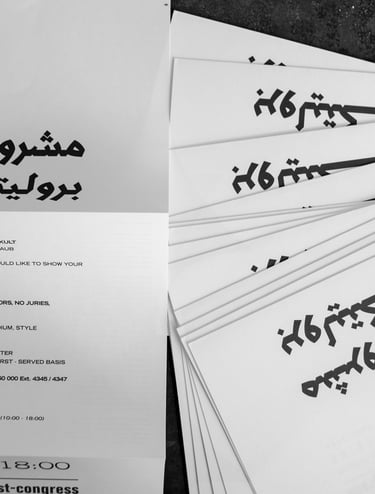 مشرو
بروليتـ
KULT
AUB
ULD LIKE TO SHOW YOUR
ORS, NO JURIES,
IUM, STYLE
TER
RST - SERVED BASIS
50 000 Ext. 4345 / 4347
(10:00 - 18:00)
18:00
st-congress
بروليتكـ
بروليتكـ
مشرو
بروليتكـ